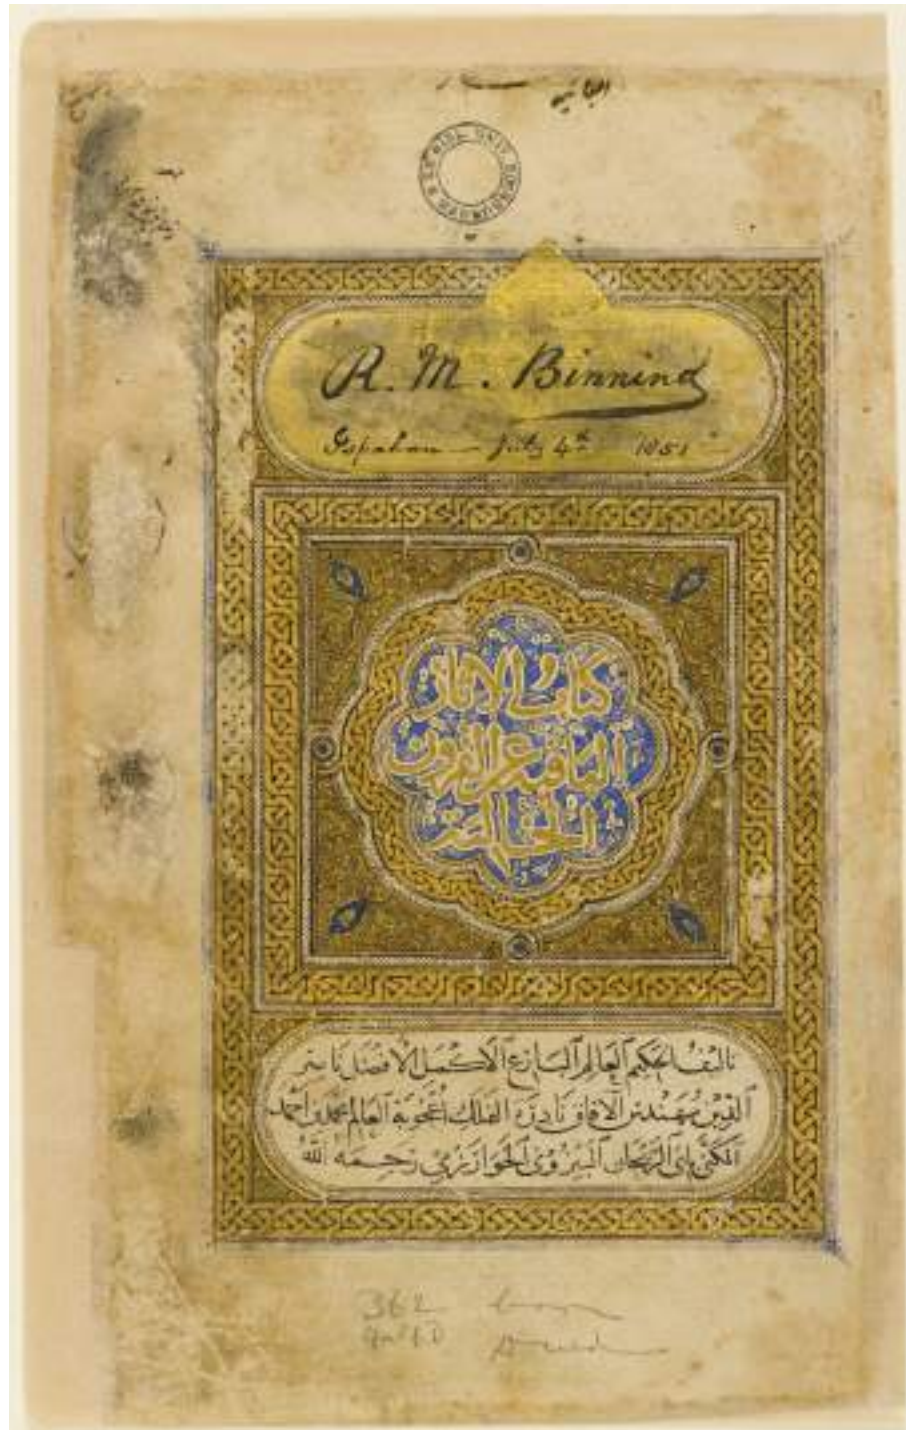 R. M. Binning
Ispahan — July 4th 1851
كتاب الاثار
الباقية عن القرون
الخالية
تاليف الحكيم العالم البارع الاكمل الافضل ناصر
الدين مهندس الافاق نادرة الفلك اعجوبة العالم محمد بن احمد
المكنى بابى الريحان البيرونى الخوارزمى رحمه الله
362